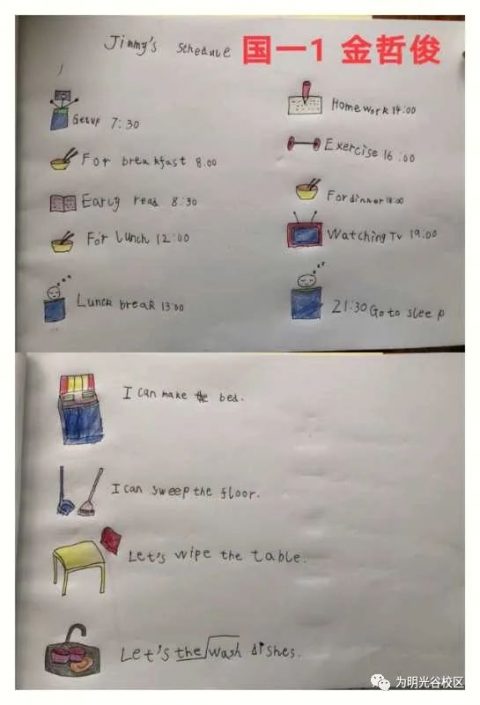 Jimmy's schedule
国一1 金哲俊
Getup 7:30
For breakfast 8:00
Early read 8:30
For Lunch 12:00
Lunch break 13:00
Homework 14:00
Exercise 16:00
For dinner 18:00
Watching TV 19:00
21:30 Go to sleep
I can make the bed.
I can sweep the floor.
Let's wipe the table.
Let's the wash dishes.
为明光谷校区